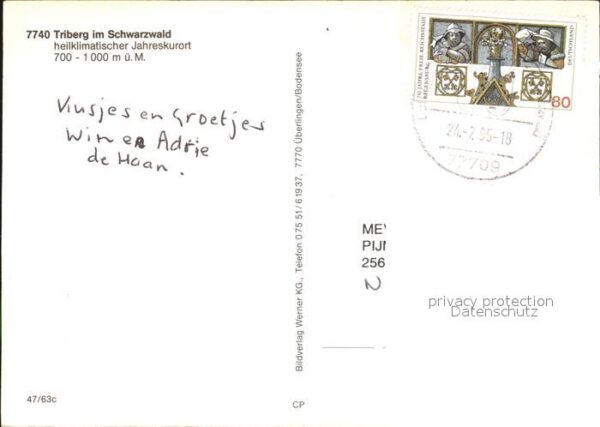 7740 Triberg im Schwarzwald
heilklimatischer Jahreskurort
700 - 1 000 m ü. M.
Kusjes en Groetjes
Wim en Adrie
de Haan.
47/63c
Bildverlag Werner KG., Telefon 0 75 51 / 6 19 37, 7770 Überlingen/Bodensee
CP
750 JAHRE FREIE REICHSSTADT
REGENSBURG
DEUTSCHLAND
80
24.-2.95-18
77709
MEV
PIJN
256
N
privacy protection
Datenschutz